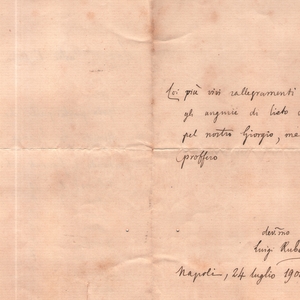 Coi più vivi rallegramenti
gli augurii di lieto
pel nostro Giorgio,
proffero
dev.mo
Luigi
Napoli, 24 luglio 190